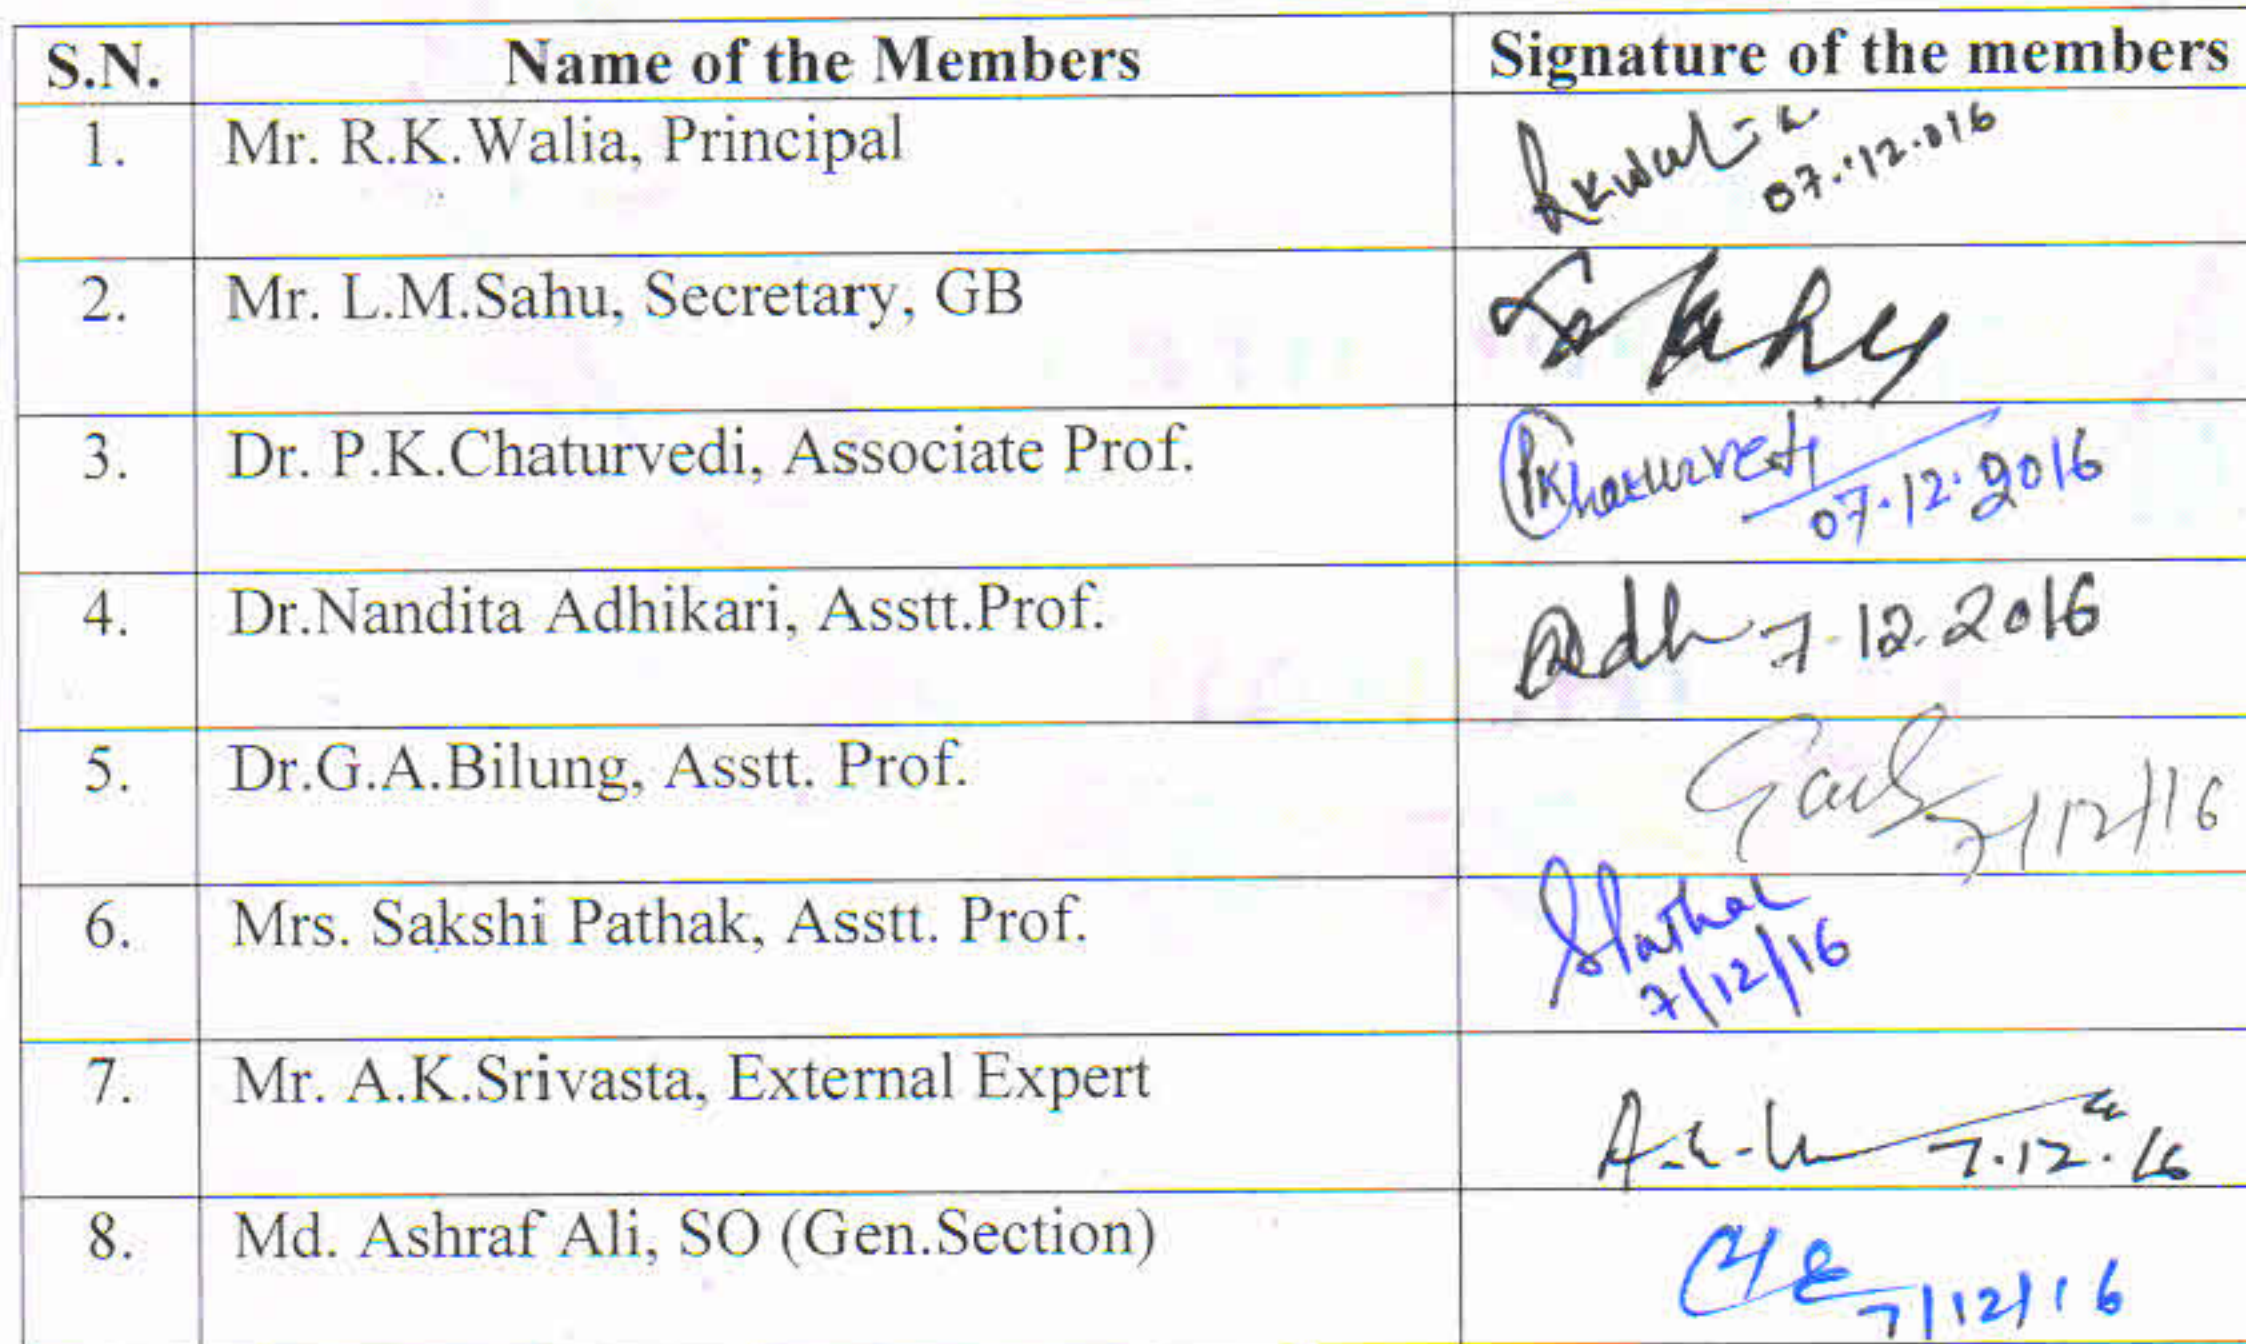 S.N. Name of the Members Signature of the members
1. Mr. R.K.Walia, Principal RKWalia
07.12.016
2. Mr. L.M.Sahu, Secretary, GB
3. Dr. P.K.Chaturvedi, Associate Prof. PKChaturvedi
07.12.2016
4. Dr.Nandita Adhikari, Asstt.Prof. Adh 7.12.2016
5. Dr.G.A.Bilung, Asstt. Prof. 7/12/16
6. Mrs. Sakshi Pathak, Asstt. Prof. SPathak
7/12/16
7. Mr. A.K.Srivasta, External Expert 7.12.16
8. Md. Ashraf Ali, SO (Gen.Section) 7/12/16